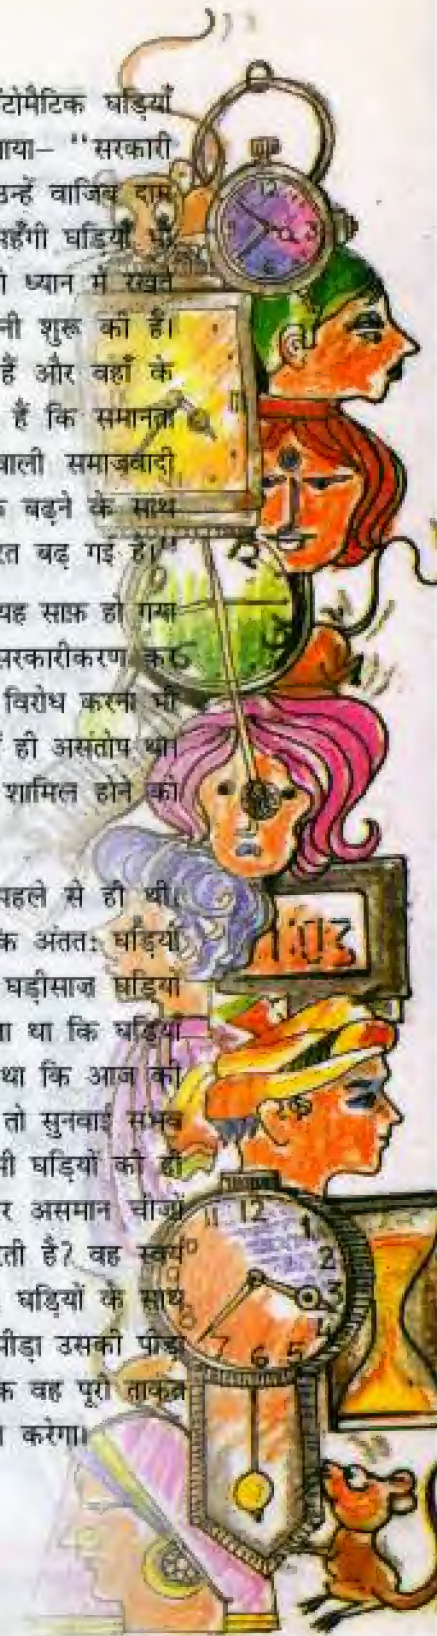 टोमैटिक घड़ियाँ
ाया– "सरकारी
उन्हें वाजिब दाम
महँगी घड़ियाँ भी
ो ध्यान में रखते
नी शुरू की हैं।
हैं और वहाँ के
हैं कि समानता
वाली समाजवादी
क बढ़ने के साथ
रत बढ़ गई है।"
यह साफ़ हो गया
सरकारीकरण का
विरोध करना भी
ं ही असंतोष था।
शामिल होने को
पहले से ही थी।
क अंतत: घड़ियाँ
घड़ीसाज़ घड़ियों
ता था कि घड़ियाँ
था कि आज की
तो सुनवाई संभव
भी घड़ियों को ही
र असमान चीजों
ती है? वह स्वयं
घड़ियों के साथ
पीड़ा उसकी पीड़ा
क वह पूरी ताकत
ा करेगा।
12
3
6
12
6
1:03
11 12 1
2
3
4
5
6
7
8
9
10